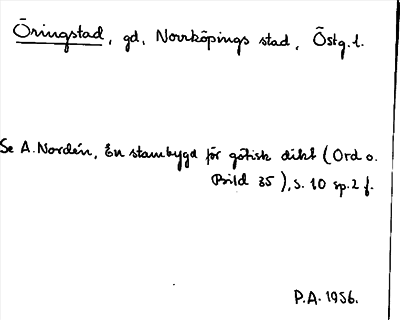 Öringstad, gd, Norrköpings stad, Östg. l.
Se A. Nordén, En stambygd för götisk dikt (Ord o.
Bild 35), s. 10 sp. 2 f.
P.A. 1956.